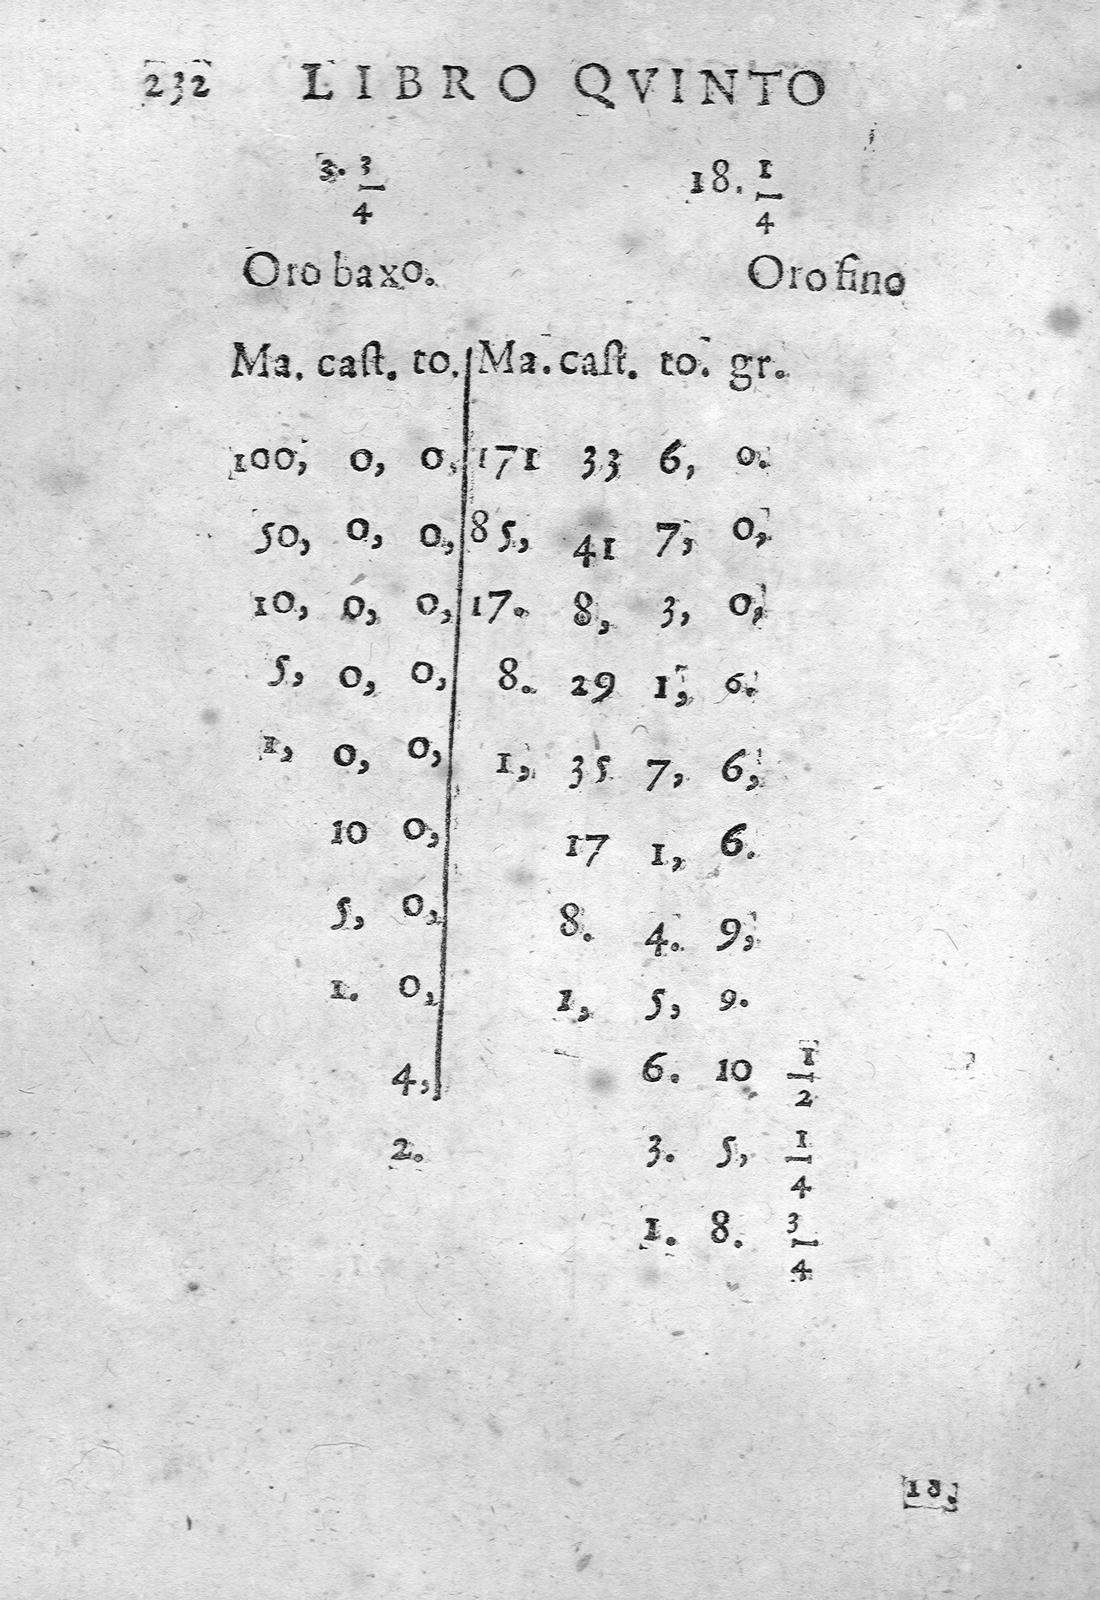 232 LIBRO QVINTO
3. 3/4 18. 1/4
Oro baxo. Oro fino
Ma. caſt. to. Ma. caſt. to. gr.
100, 0, 0, 171 33 6, 0.
50, 0, 0, 85, 41 7, 0,
10, 0, 0, 17. 8, 3, 0,
5, 0, 0, 8. 29 1, 6.
1, 0, 0, 1, 35 7, 6,
10 0, 17 1, 6.
5, 0, 8. 4. 9,
1. 0, 1, 5, 9.
4, 6. 10 1/2
2. 3. 5, 1/4
1. 8. 3/4
18.